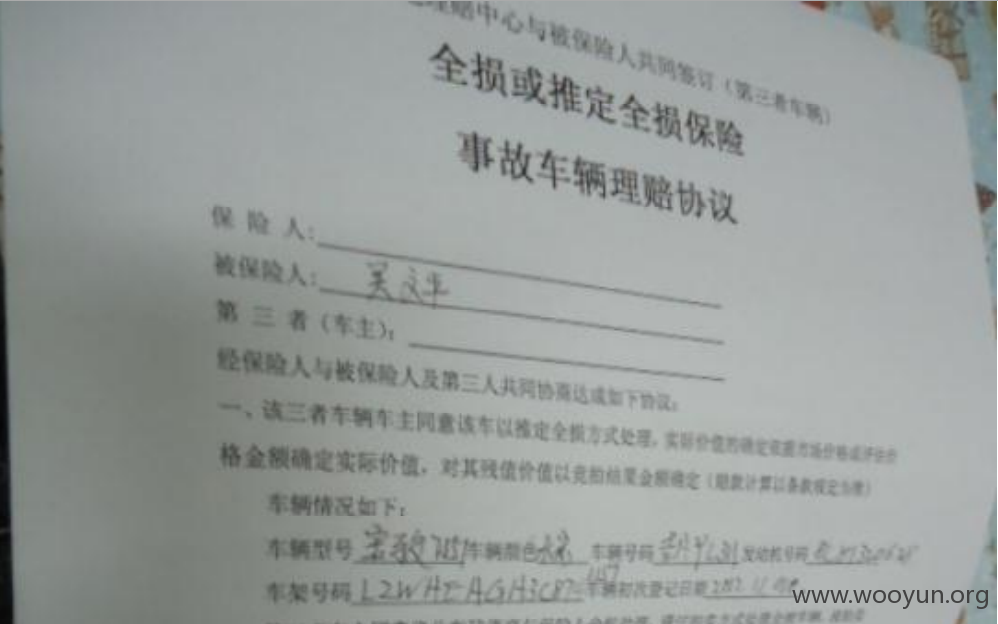 理赔中心与被保险人共同签订（第三者车辆）
全损或推定全损保险
事故车辆理赔协议
保 险 人：
被保险人：吴文平
第 三 者（车主）：
经保险人与被保险人及第三人共同协商达成如下协议：
一、该三者车辆车主同意该车以推定全损方式处理，实际价值的确定依据市场价格或评估价
格金额确定实际价值，对其残值价值以竞拍结果金额确定（赔款计算以条款规定为准）
车辆情况如下：
车辆型号 车辆颜色 车辆号码 发动机号码
车架号码 车辆初次登记日期
www.wooyun.org